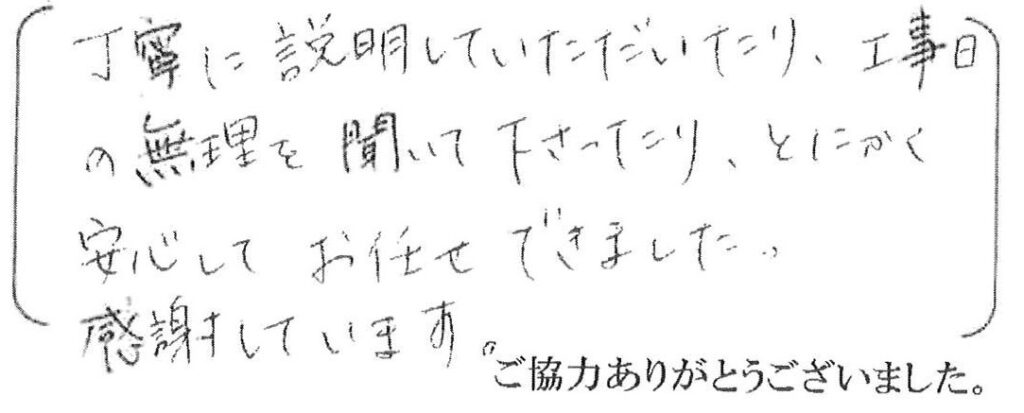 丁寧に説明していただいたり、工事日
の無理を聞いて下さったり、とにかく
安心してお任せできました。
感謝しています。
ご協力ありがとうございました。